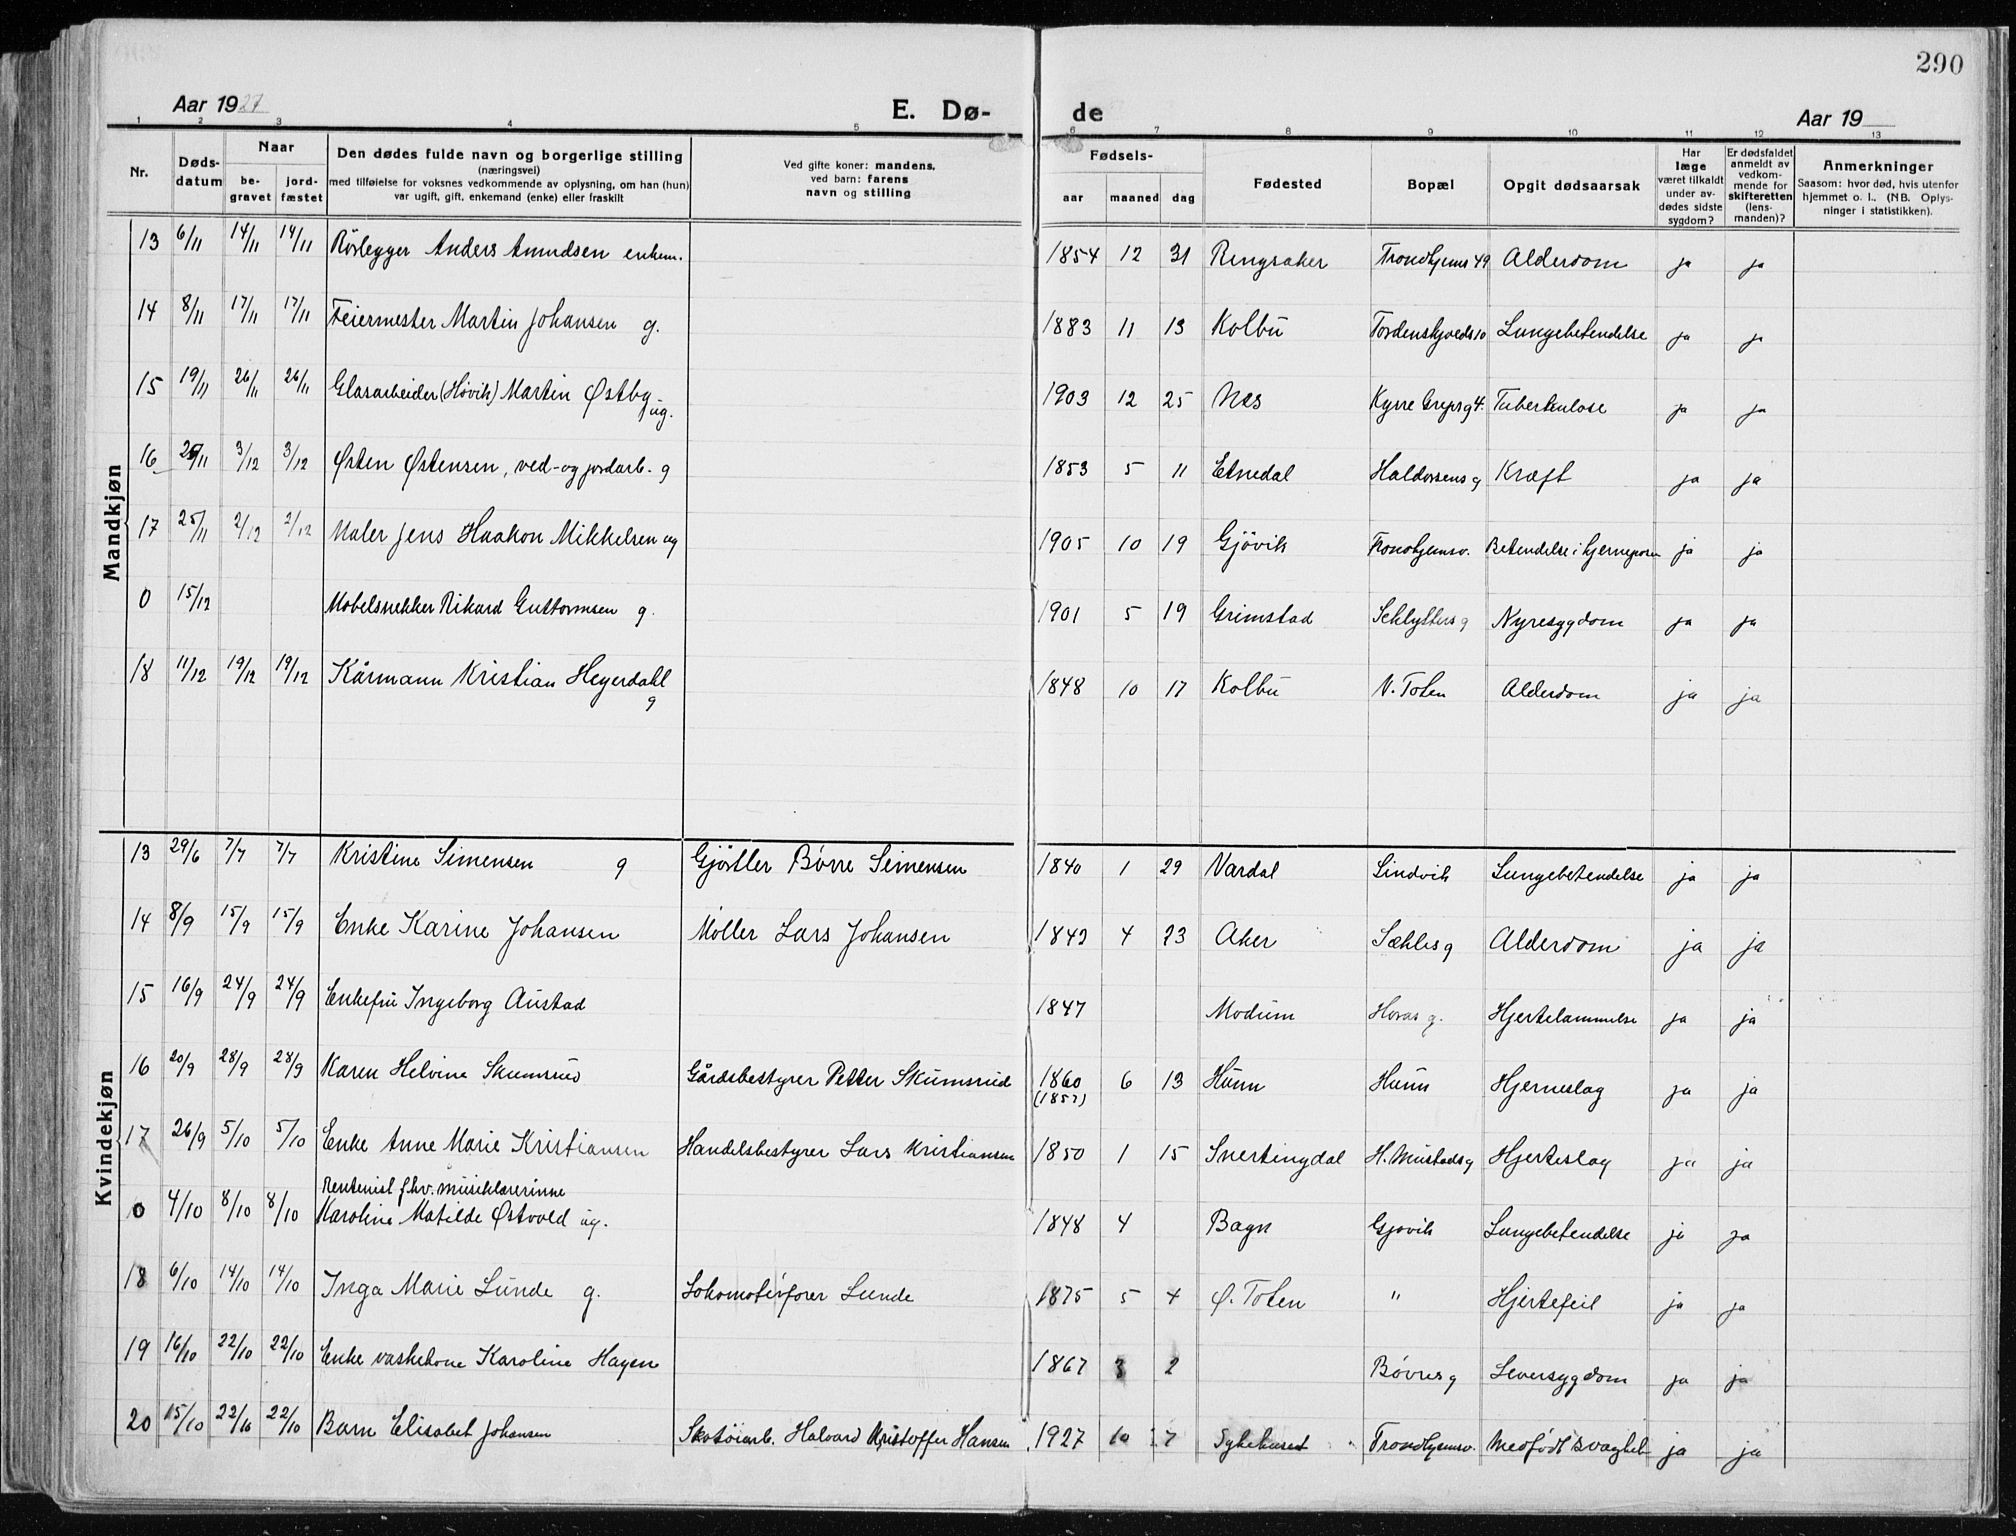 290
Aar 1927 E. Dø- de Aar 19
1 2 3 4 5 6 7 8 9 10 11 12 13
Nr. Døds-datum Naar be-gravet jord-fæstet Den dødes fulde navn og borgerlige stilling (næringsvei) med tilføielse for voksnes vedkommende av oplysning, om han (hun) var ugift, gift, enkemand (enke) eller fraskilt Ved gifte koner: mandens, ved barn: farens navn og stilling Fødsels- aar maaned dag Fødested Bopæl Opgit dødsaarsak Har læge været tilkaldt under av-dødes sidste sygdom? Er dødsfaldet anmeldt av vedkom-mende for skifteretten (lens-manden)? Anmerkninger Saasom: hvor død, hvis utenfor hjemmet o. l.. (NB. Oplys-ninger i statistikken).
Mandkjøn
13 6/11 14/11 14/11 Rörlegger Anders Amundsen enkem. 1854 12 31 Ringsaker Trondhjems 49 Alderdom ja ja
14 8/11 17/11 17/11 Feiermester Martin Johansen g. 1883 11 13 Kolbu Tordenskjolds 10 Lungebetendelse ja ja
15 19/11 26/11 26/11 Glasarbeider (Høvik) Martin Østby ug. 1903 12 25 Nes Kyrre Grepsg 4. Tuberkulose ja ja
16 /11 3/12 3/12 Østen Østensen, ved- og jordarb. g 1853 5 11 Etnedal Haldorsens g Kræft ja ja
17 25/11 2/12 2/12 Maler Jens Haakon Mikkelsen ug 1905 10 19 Gjövik Trondhjemsv. Betendelse i hjerneposen ja ja
0 15/12 Møbelsnekker Rikard Guttormsen g. 1901 5 19 Grimstad Schlytters g Nyresygdom ja ja
18 11/12 19/12 19/12 Kårmann Kristian Heyerdahl g 1848 10 17 Kolbu V. Toten Alderdom ja ja
Kvindekjøn
13 29/6 7/7 7/7 Kristine Simensen g Gjörtler Börre Simensen 1840 1 29 Vardal Lindvik Lungebetendelse ja ja
14 8/9 15/9 15/9 Enke Karine Johansen Møller Lars Johansen 1842 4 23 Aker Sæhles g Alderdom ja ja
15 16/9 24/9 24/9 Enkefru Ingeborg Austad 1847 Modum g. Hjertelammelse ja ja
16 20/9 28/9 28/9 Karen Helvine Skumsrud Gårdsbestyrer Petter Skumsrud 1860 (1857) 6 13 Hunn Hunn Hjerneslag ja ja
17 26/9 5/10 5/10 Enke Anne Marie Kristiansen Handelsbestyrer Lars Kristiansen 1850 1 15 Snertingdal H. Mustads g Hjerteslag ja ja
Rentenist fhv. musiklærerinne
0 4/10 8/10 8/10 Karoline Matilde Østvold ug. 1848 4 Bagn Gjøvik Lungebetendelse ja ja
18 6/10 14/10 14/10 Inga Marie Lunde g. Lokomotivfører Lunde 1875 5 4 Ø. Toten " Hjertefeil ja ja
19 16/10 22/10 22/10 Enke vaskekone Karoline Hagen 1867 3 2 Børres g Leversygdom ja ja
20 15/10 22/10 22/10 Barn Elisabet Johansen Skotöiarb. Halvard Kristoffer Hansen 1927 10 7 Sykehuset Trondhjemsv. Medfødt svaghet ja ja